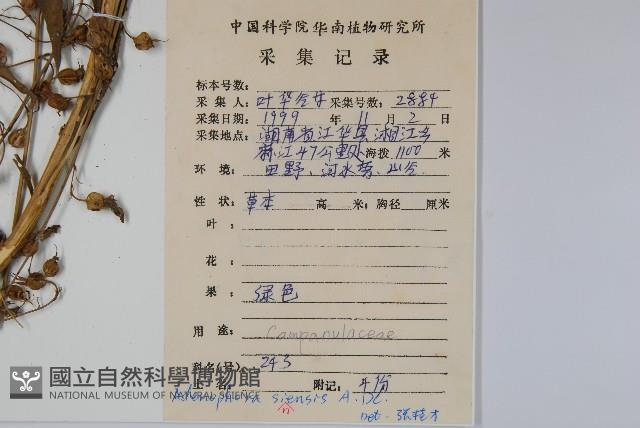 中国科学院华南植物研究所
采集记录
标本号数：
采集人：叶华谷等 采集号数：2884
采集日期：1999年11月2日
采集地点：湖南省江华县湘江乡
麻江47公里处 海拨1100米
环境：田野、河水旁、山谷
性状：草本 高 米；胸径 厘米
叶：
花：
果：绿色
用途：
Campanulaceae
科名(号) 243
附记：4份
siensis A. DC.
Det. 张桂才
國立自然科學博物館
NATIONAL MUSEUM OF NATURAL SCIENCE